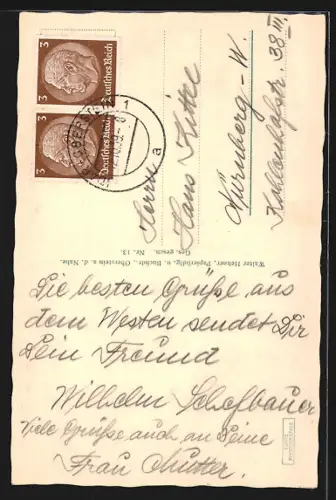 3
Deutsches Reich
3
Deutsches Reich
1
a
Herrn
Hans
Nürnberg-W.
38 III.
Walter Hehner, Papierhdlg. u. Buchdr., Oberstein a. d. Nahe.
Ges. gesch. Nr. 13.
Die besten Grüße aus
dem Westen sendet Dir
Dein Freund
Wilhelm Scheffbauer
Viele Grüße auch an Deine
Frau Mutter.